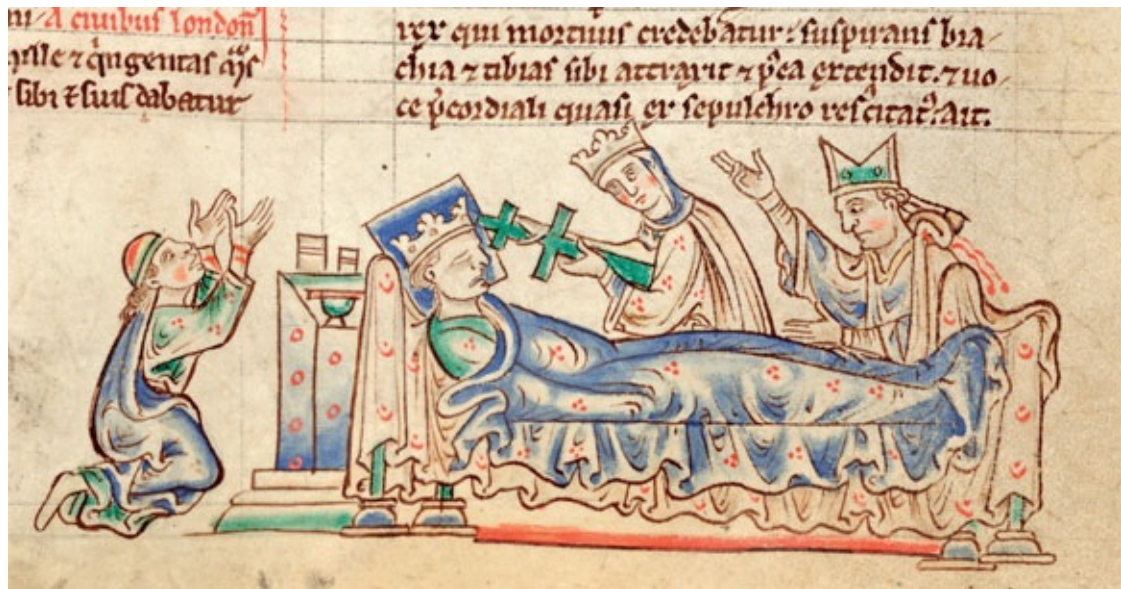 A ciuibus londoñ
mille ⁊ qͥngentas
sibi ⁊ suis dabatur
rex qui mortuus credebatur: suspirans bra/
chia ⁊ tibias sibi attraxit ⁊ p̾ea extendit. ⁊ uo/
ce p̾cordiali quasi ex sepulchro resc̾itatꝰ: ait.